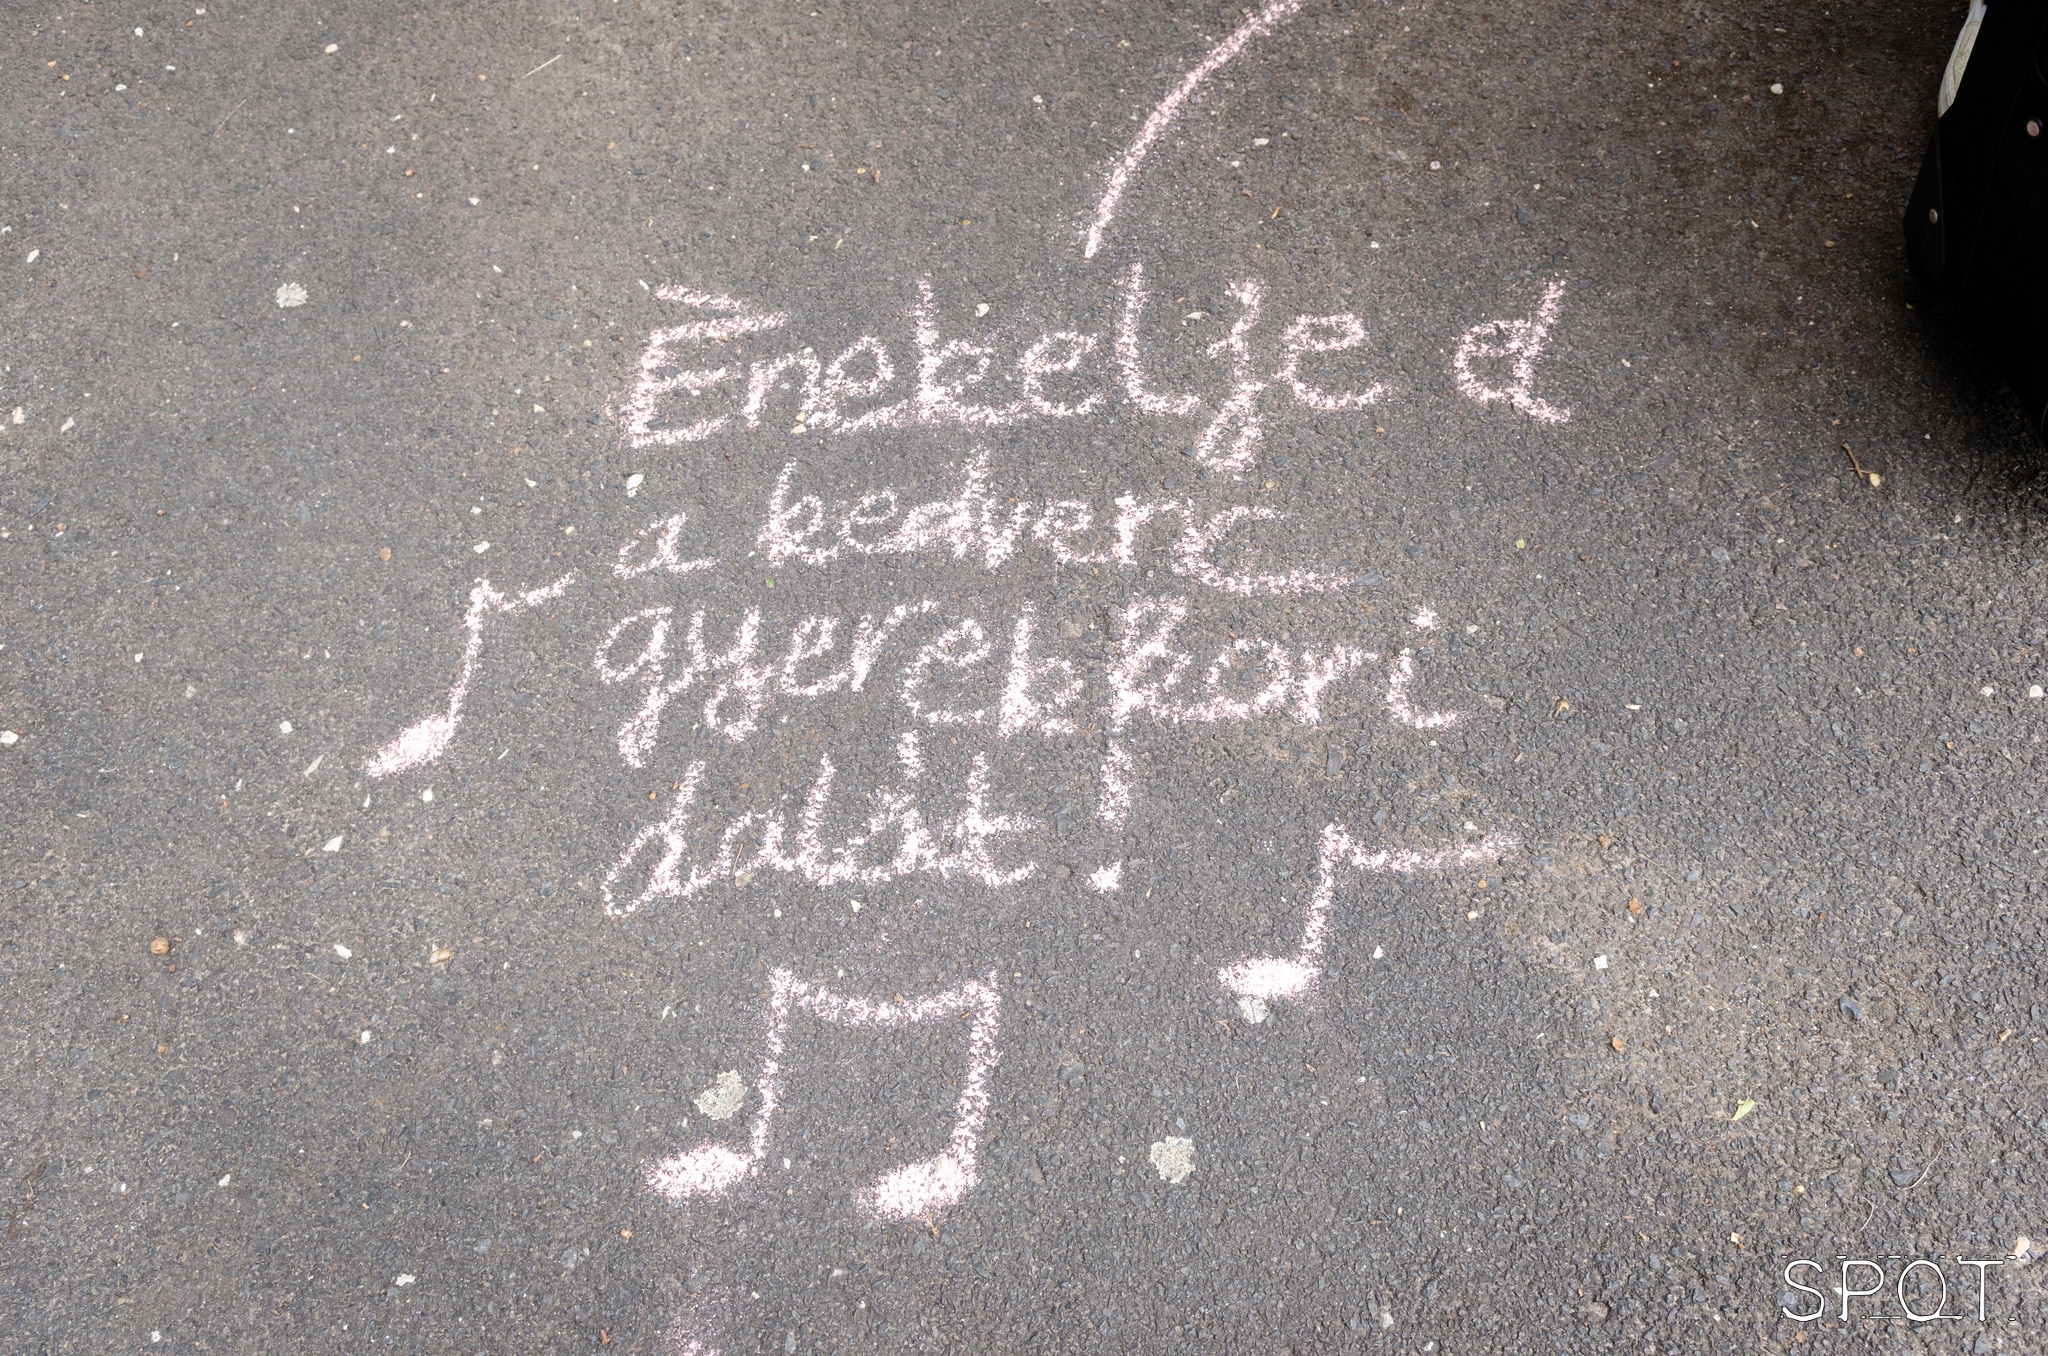 Ènekelje d
a kedvenc
gyerekkori
dalát!
SPOT